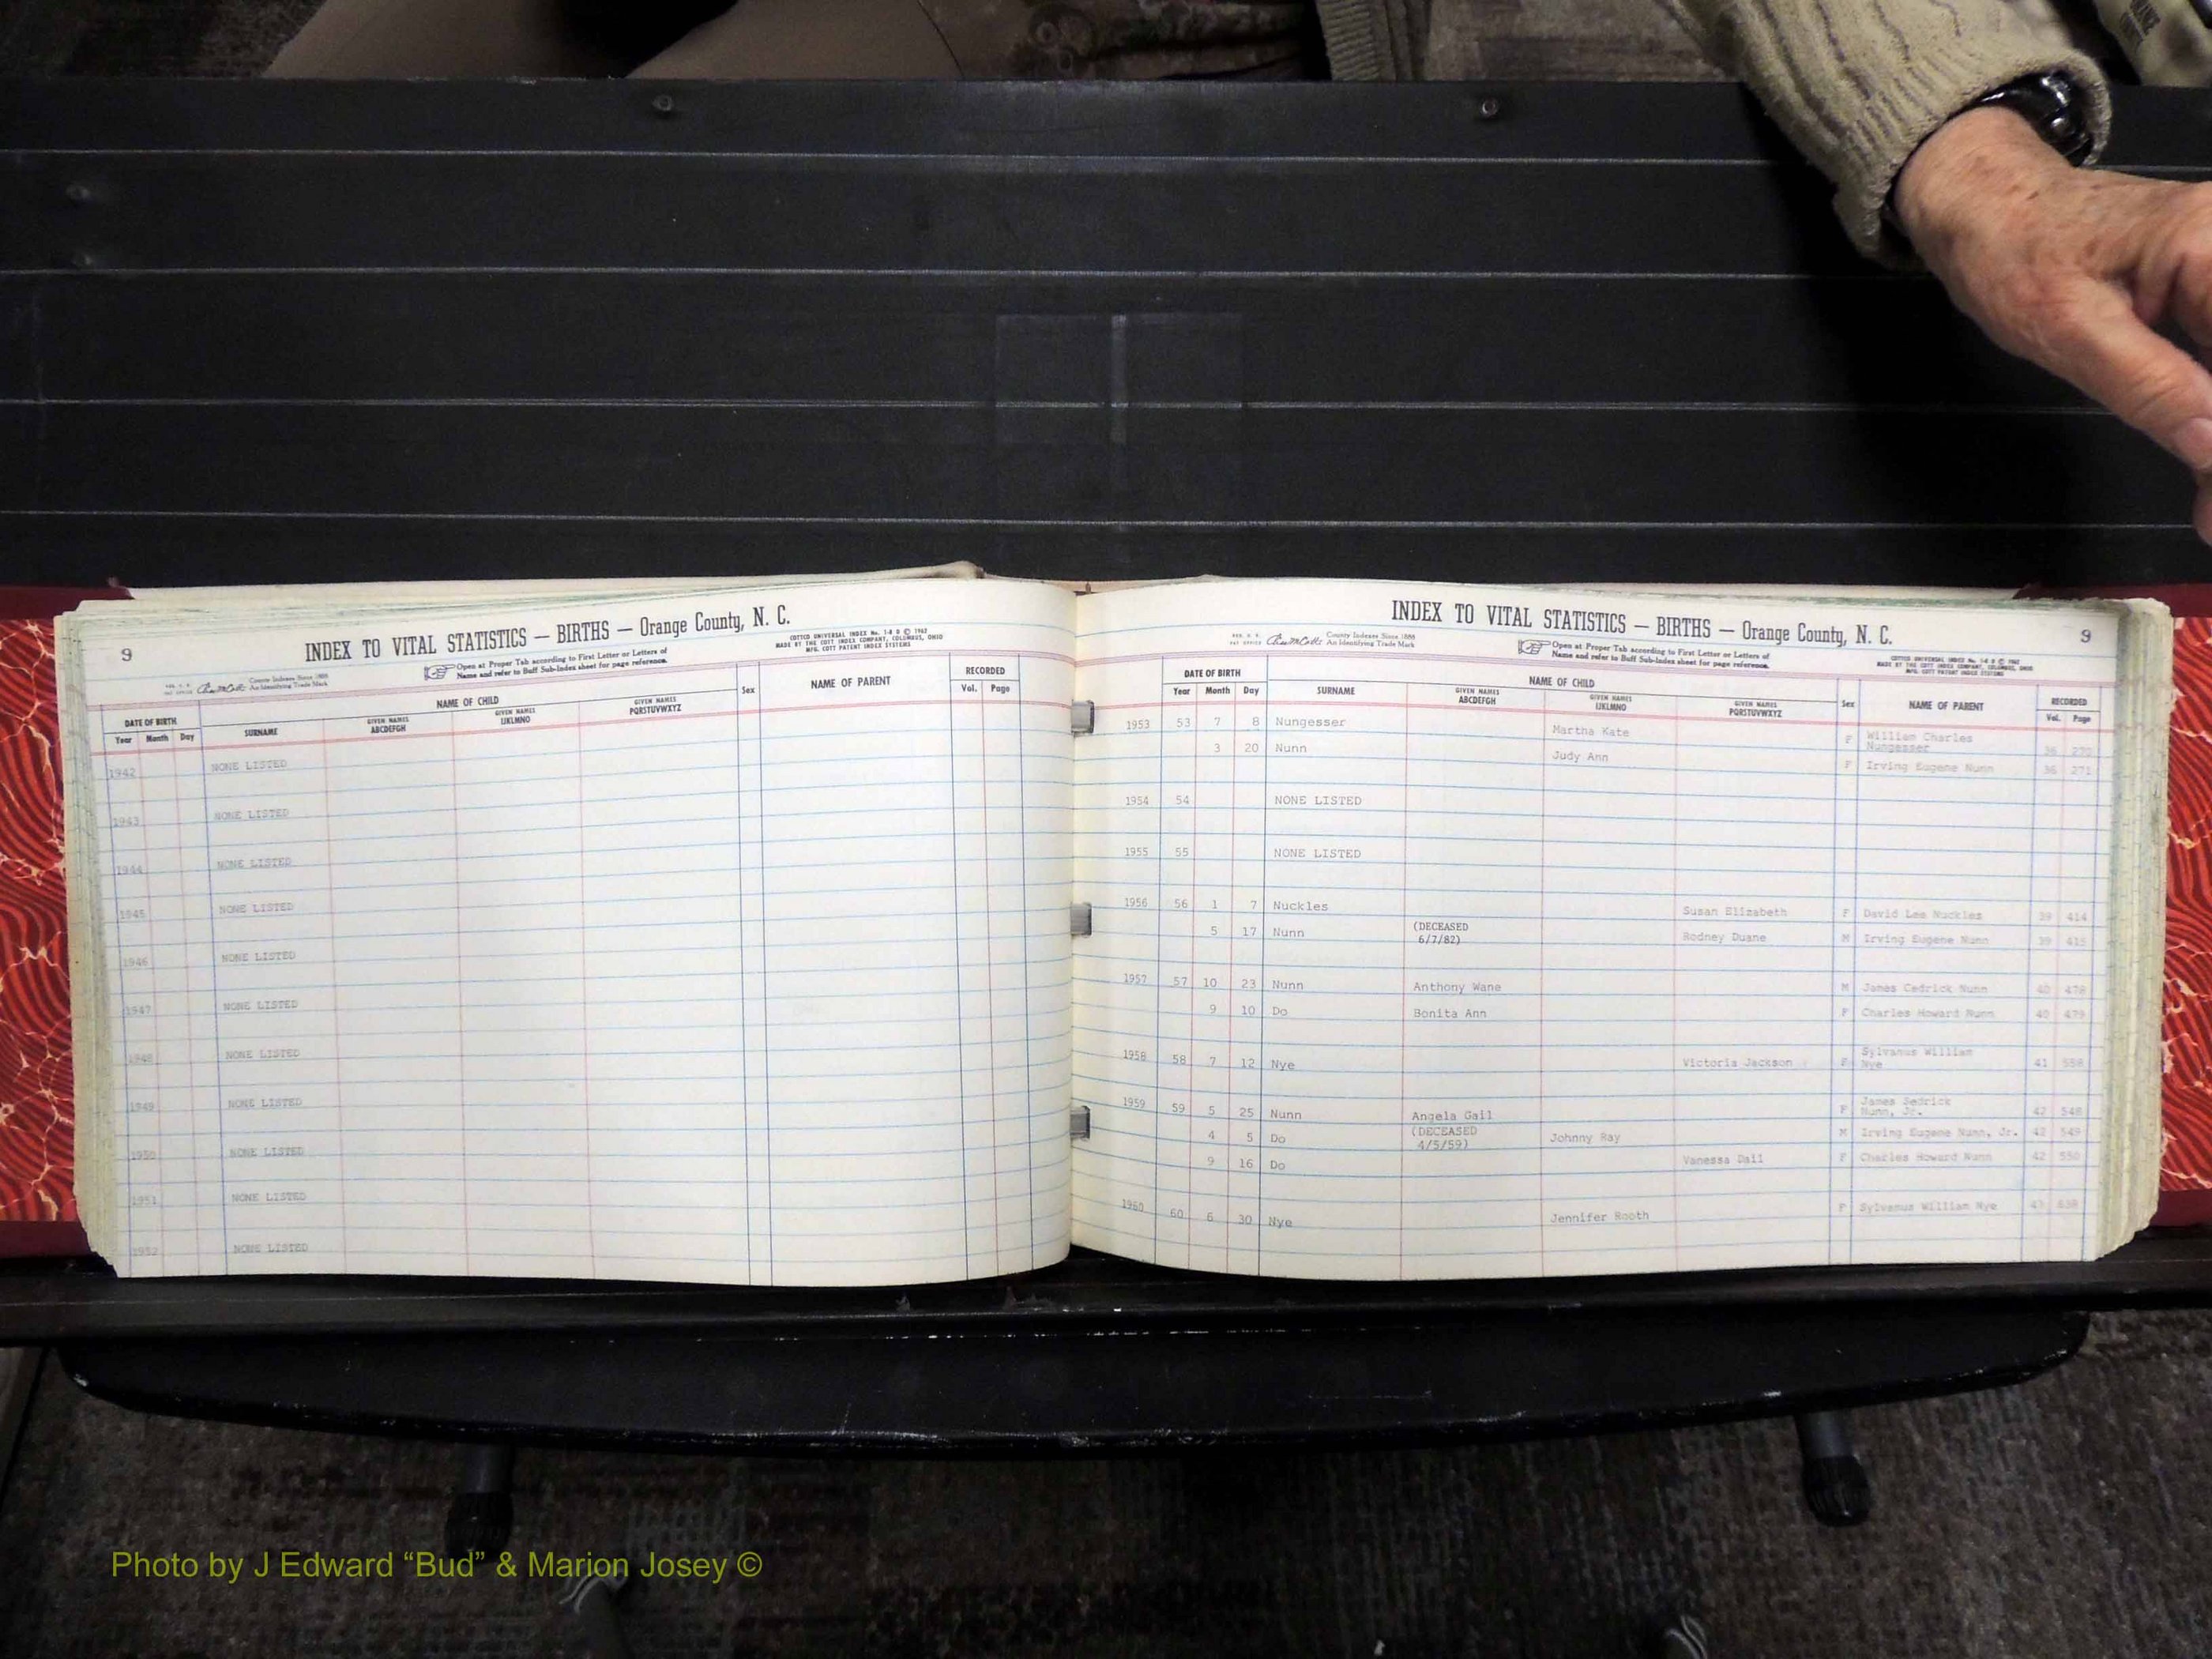 9
INDEX TO VITAL STATISTICS — BIRTHS — Orange County, N. C.
COTTCO UNIVERSAL INDEX No. 1-8 B © 1962
MADE BY THE COTT INDEX COMPANY, COLUMBUS, OHIO
MFG. COTT PATENT INDEX SYSTEMS
County Indexes Since 1888
An Identifying Trade Mark
Open at Proper Tab according to First Letter or Letters of
Name and refer to Buff Sub-Index sheet for page reference.
DATE OF BIRTH NAME OF CHILD Sex NAME OF PARENT RECORDED
Year Month Day SURNAME GIVEN NAMES ABCDEFGH GIVEN NAMES IJKLMNO GIVEN NAMES PQRSTUVWXYZ Vol. Page
1942 NONE LISTED
1943 NONE LISTED
1944 NONE LISTED
1945 NONE LISTED
1946 NONE LISTED
1947 NONE LISTED
1948 NONE LISTED
1949 NONE LISTED
1950 NONE LISTED
1951 NONE LISTED
1952 NONE LISTED
INDEX TO VITAL STATISTICS — BIRTHS — Orange County, N. C.
9
County Indexes Since 1888
An Identifying Trade Mark
Open at Proper Tab according to First Letter or Letters of
Name and refer to Buff Sub-Index sheet for page reference.
COTTCO UNIVERSAL INDEX No. 1-8 B © 1962
MADE BY THE COTT INDEX COMPANY, COLUMBUS, OHIO
MFG. COTT PATENT INDEX SYSTEMS
DATE OF BIRTH NAME OF CHILD Sex NAME OF PARENT RECORDED
Year Month Day SURNAME GIVEN NAMES ABCDEFGH GIVEN NAMES IJKLMNO GIVEN NAMES PQRSTUVWXYZ Vol. Page
1953 53 7 8 Nungesser Martha Kate F William Charles Nungesser 36 270
3 20 Nunn Judy Ann F Irving Eugene Nunn 36 271
1954 54 NONE LISTED
1955 55 NONE LISTED
1956 56 1 7 Nuckles Susan Elizabeth F David Lee Nuckles 39 414
5 17 Nunn (DECEASED 6/7/82) Rodney Duane M Irving Eugene Nunn 39 415
1957 57 10 23 Nunn Anthony Wane M James Cedrick Nunn 40 478
9 10 Do Bonita Ann F Charles Howard Nunn 40 479
1958 58 7 12 Nye Victoria Jackson F Sylvanus William Nye 41 558
1959 59 5 25 Nunn Angela Gail F James Sedrick Nunn, Jr. 42 548
4 5 Do (DECEASED 4/5/59) Johnny Ray M Irving Eugene Nunn, Jr. 42 549
9 16 Do Vanessa Dail F Charles Howard Nunn 42 550
1960 60 6 30 Nye Jennifer Rooth F Sylvanus William Nye 43 638
Photo by J Edward “Bud” & Marion Josey ©